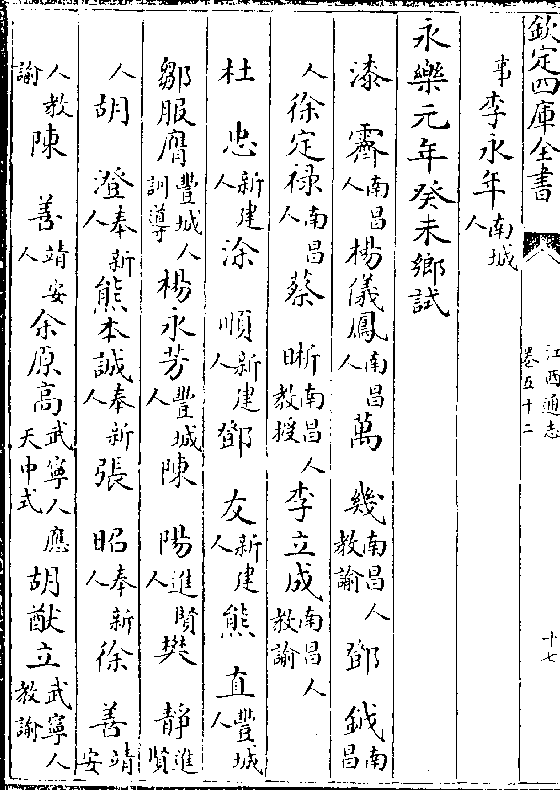 欽定四庫全書
江西通志
卷五十二
十七
事李永年南城人
永樂元年癸未鄉試
漆霽南昌人楊儀鳳南昌人萬幾南昌人教諭鄧鉞南昌
人徐定祿南昌人蔡晣南昌人教授李立成南昌人教諭
杜忠新建人涂順新建人鄧友新建人熊直豐城人
鄒服膺豐城人訓導楊永芳豐城人陳陽進賢人樊靜進賢
人胡澄奉新人熊本誠奉新人張昭奉新人徐善靖安
人教諭陳善靖安人余原高武寧人應天中式胡猷立武寧人教諭